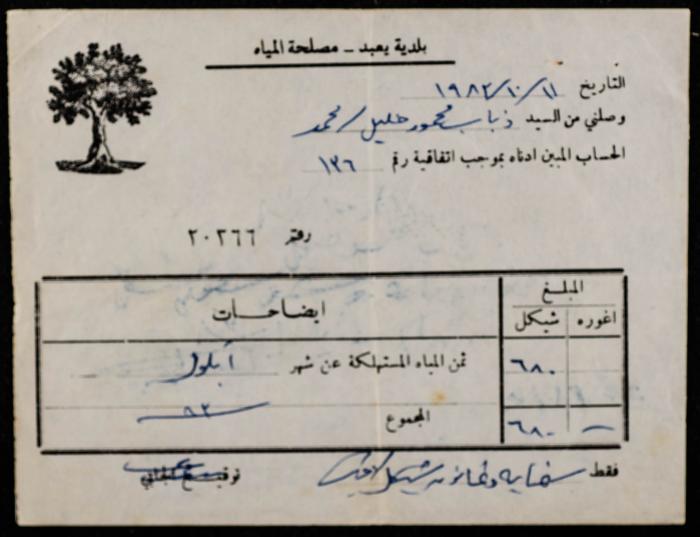 بلدية يعبد - مصلحة المياه
التاريخ ١١/١٠/١٩٨٢
وصلني من السيد ذياب محمود خليل / محمد
الحساب المبين ادناه بموجب اتفاقية رقم ١٣٦
رقم ٢٠٢٦٦
المبلغ
اغوره شيكل ايضاحات
٦٨٠ ثمن المياه المستهلكة عن شهر أيلول
٨٢
— ٦٨٠ المجموع
فقط ستماية وثمانون شيكل
توقيع الجابي